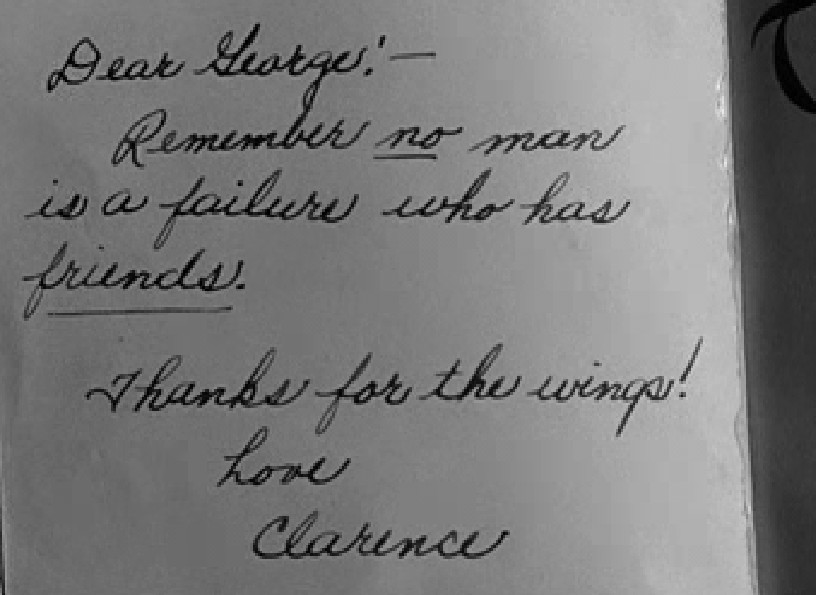 Dear George:—
Remember no man
is a failure who has
friends.
Thanks for the wings!
Love
Clarence